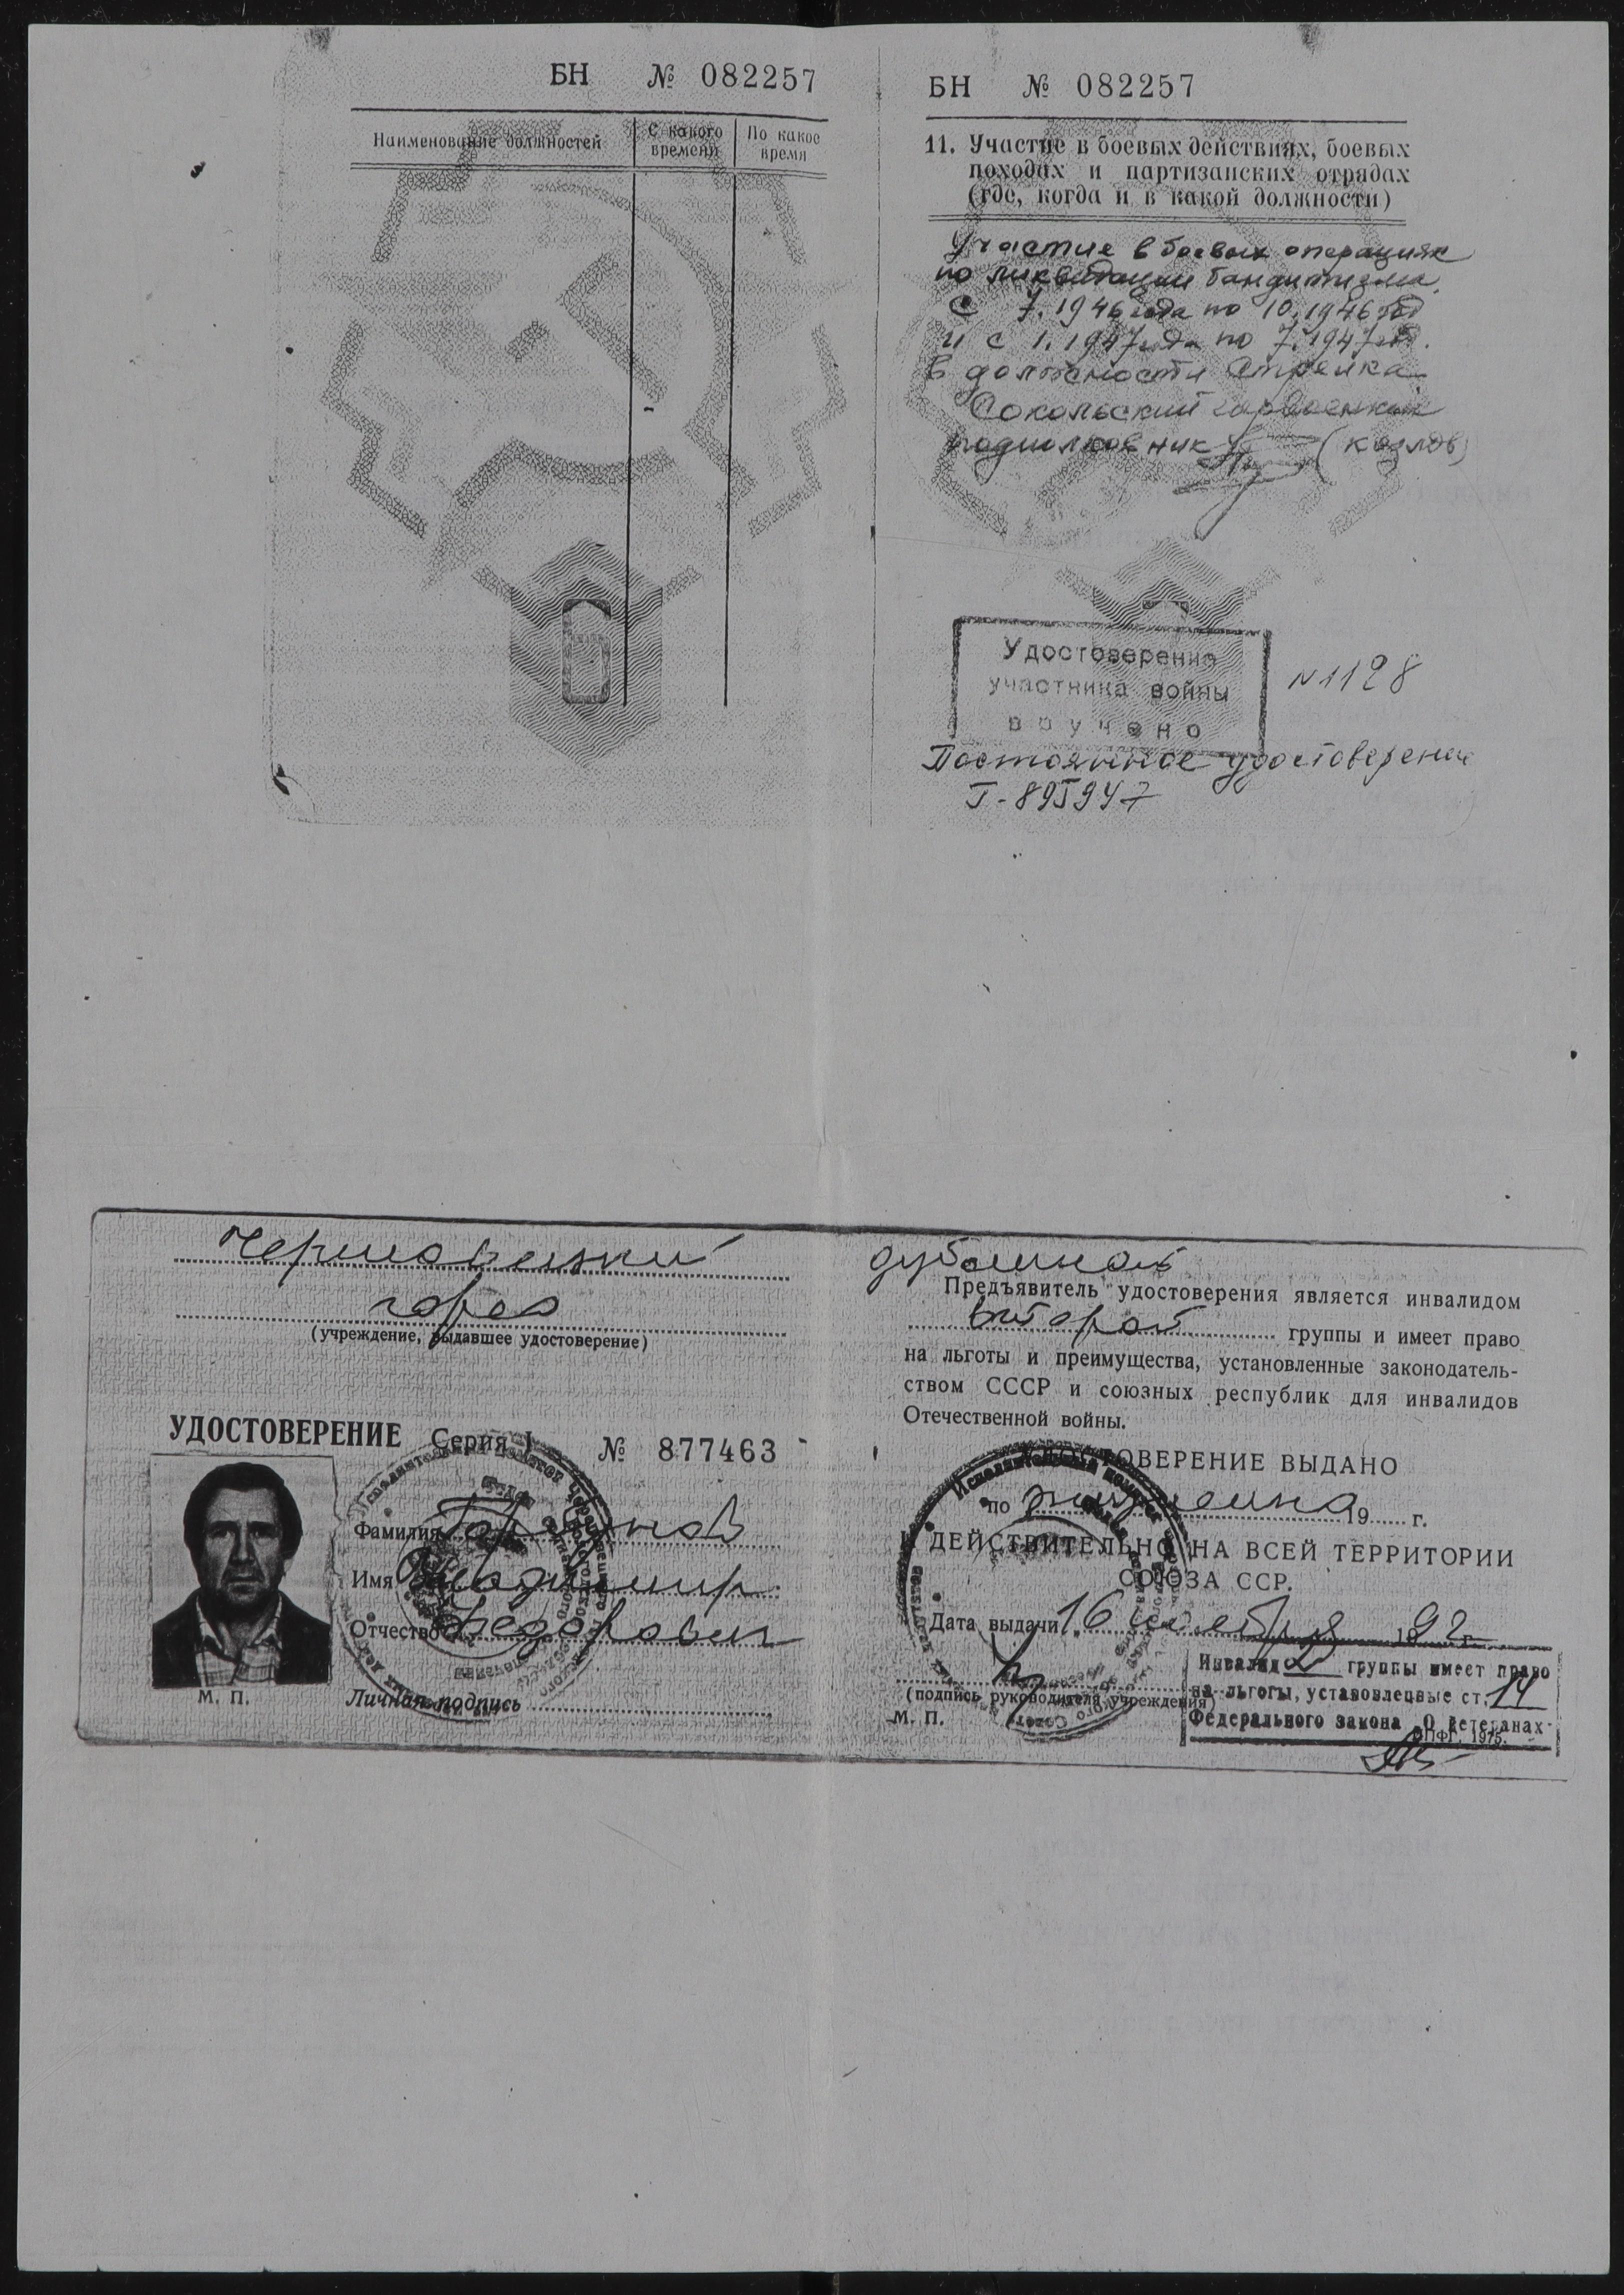 БН № 082257
Наименование должностей
С какого времени
По какое время
БН № 082257
11. Участие в боевых действиях, боевых
походах и партизанских отрядах
(где, когда и в какой должности)
Участие в боевых операциях
по ликвидации бандитизма.
С 7.1946 года по 10.1946 год
и с 1.1947 года по 7.1947 год.
В должности стрелка.
Сокольский горвоенком
подполковник (Козлов)
Удостоверение
участника войны
вручено
N 1128
Постоянное удостоверение
Г-895947
Череповецкий
горсо
(учреждение, выдавшее удостоверение)
УДОСТОВЕРЕНИЕ Серия I № 877463
Фамилия
Имя Владимир
Отчество Федорович
М. П.
Личная подпись
дубликат
Предъявитель удостоверения является инвалидом
второй группы и имеет право
на льготы и преимущества, установленные законодатель-
ством СССР и союзных республик для инвалидов
Отечественной войны.
УДОСТОВЕРЕНИЕ ВЫДАНО
по 19 г.
И ДЕЙСТВИТЕЛЬНО НА ВСЕЙ ТЕРРИТОРИИ
СОЮЗА ССР.
Дата выдачи 16 ноября 1992 г.
(подпись руководителя учреждения)
М. П.
Инвалид 2 группы имеет право
на льготы, установленные ст. 14
Федерального закона „О ветеранах"
МПФГ. 1975.